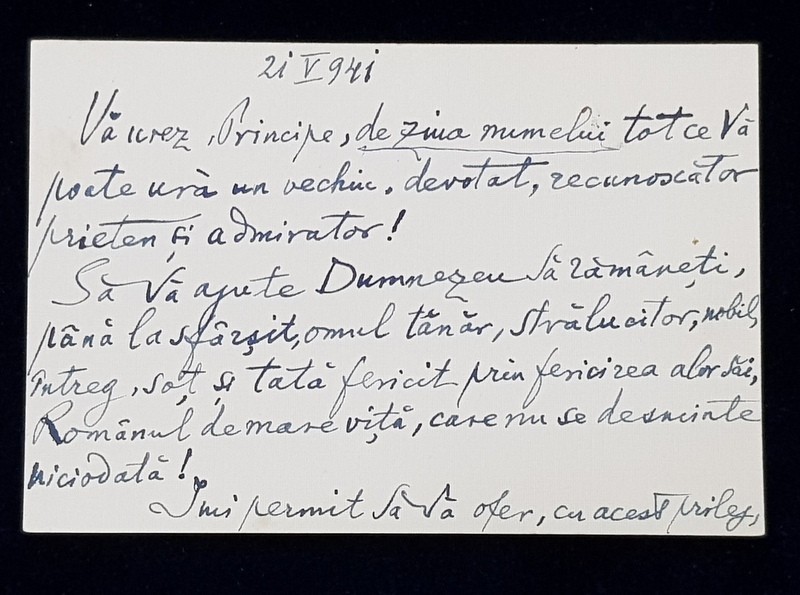 21 V 941
Vă urez, Principe, de ziua numelui tot ce Vă
poate ură un vechiu, devotat, recunoscător
prieten și admirator!
Să Vă ajute Dumnezeu să rămâneți,
până la sfârșit, omul tânăr, strălucitor, nobil,
întreg, soț și tată fericit prin fericirea alor săi,
Românul de mare viță, care nu se desminte
niciodată!
Îmi permit să Vă ofer, cu acest prilej,